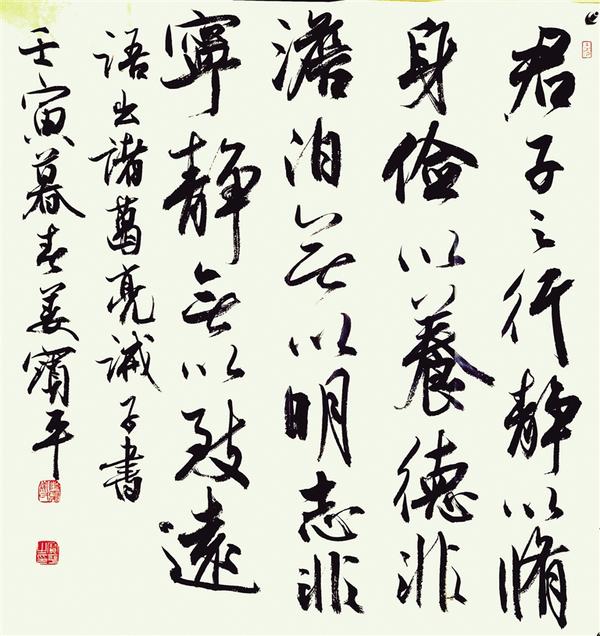 君子之行静以脩
身儉以養德非
澹泊無以明志非
寧静無以致遠
語出諸葛亮誡子書
壬寅暮春姜寶平